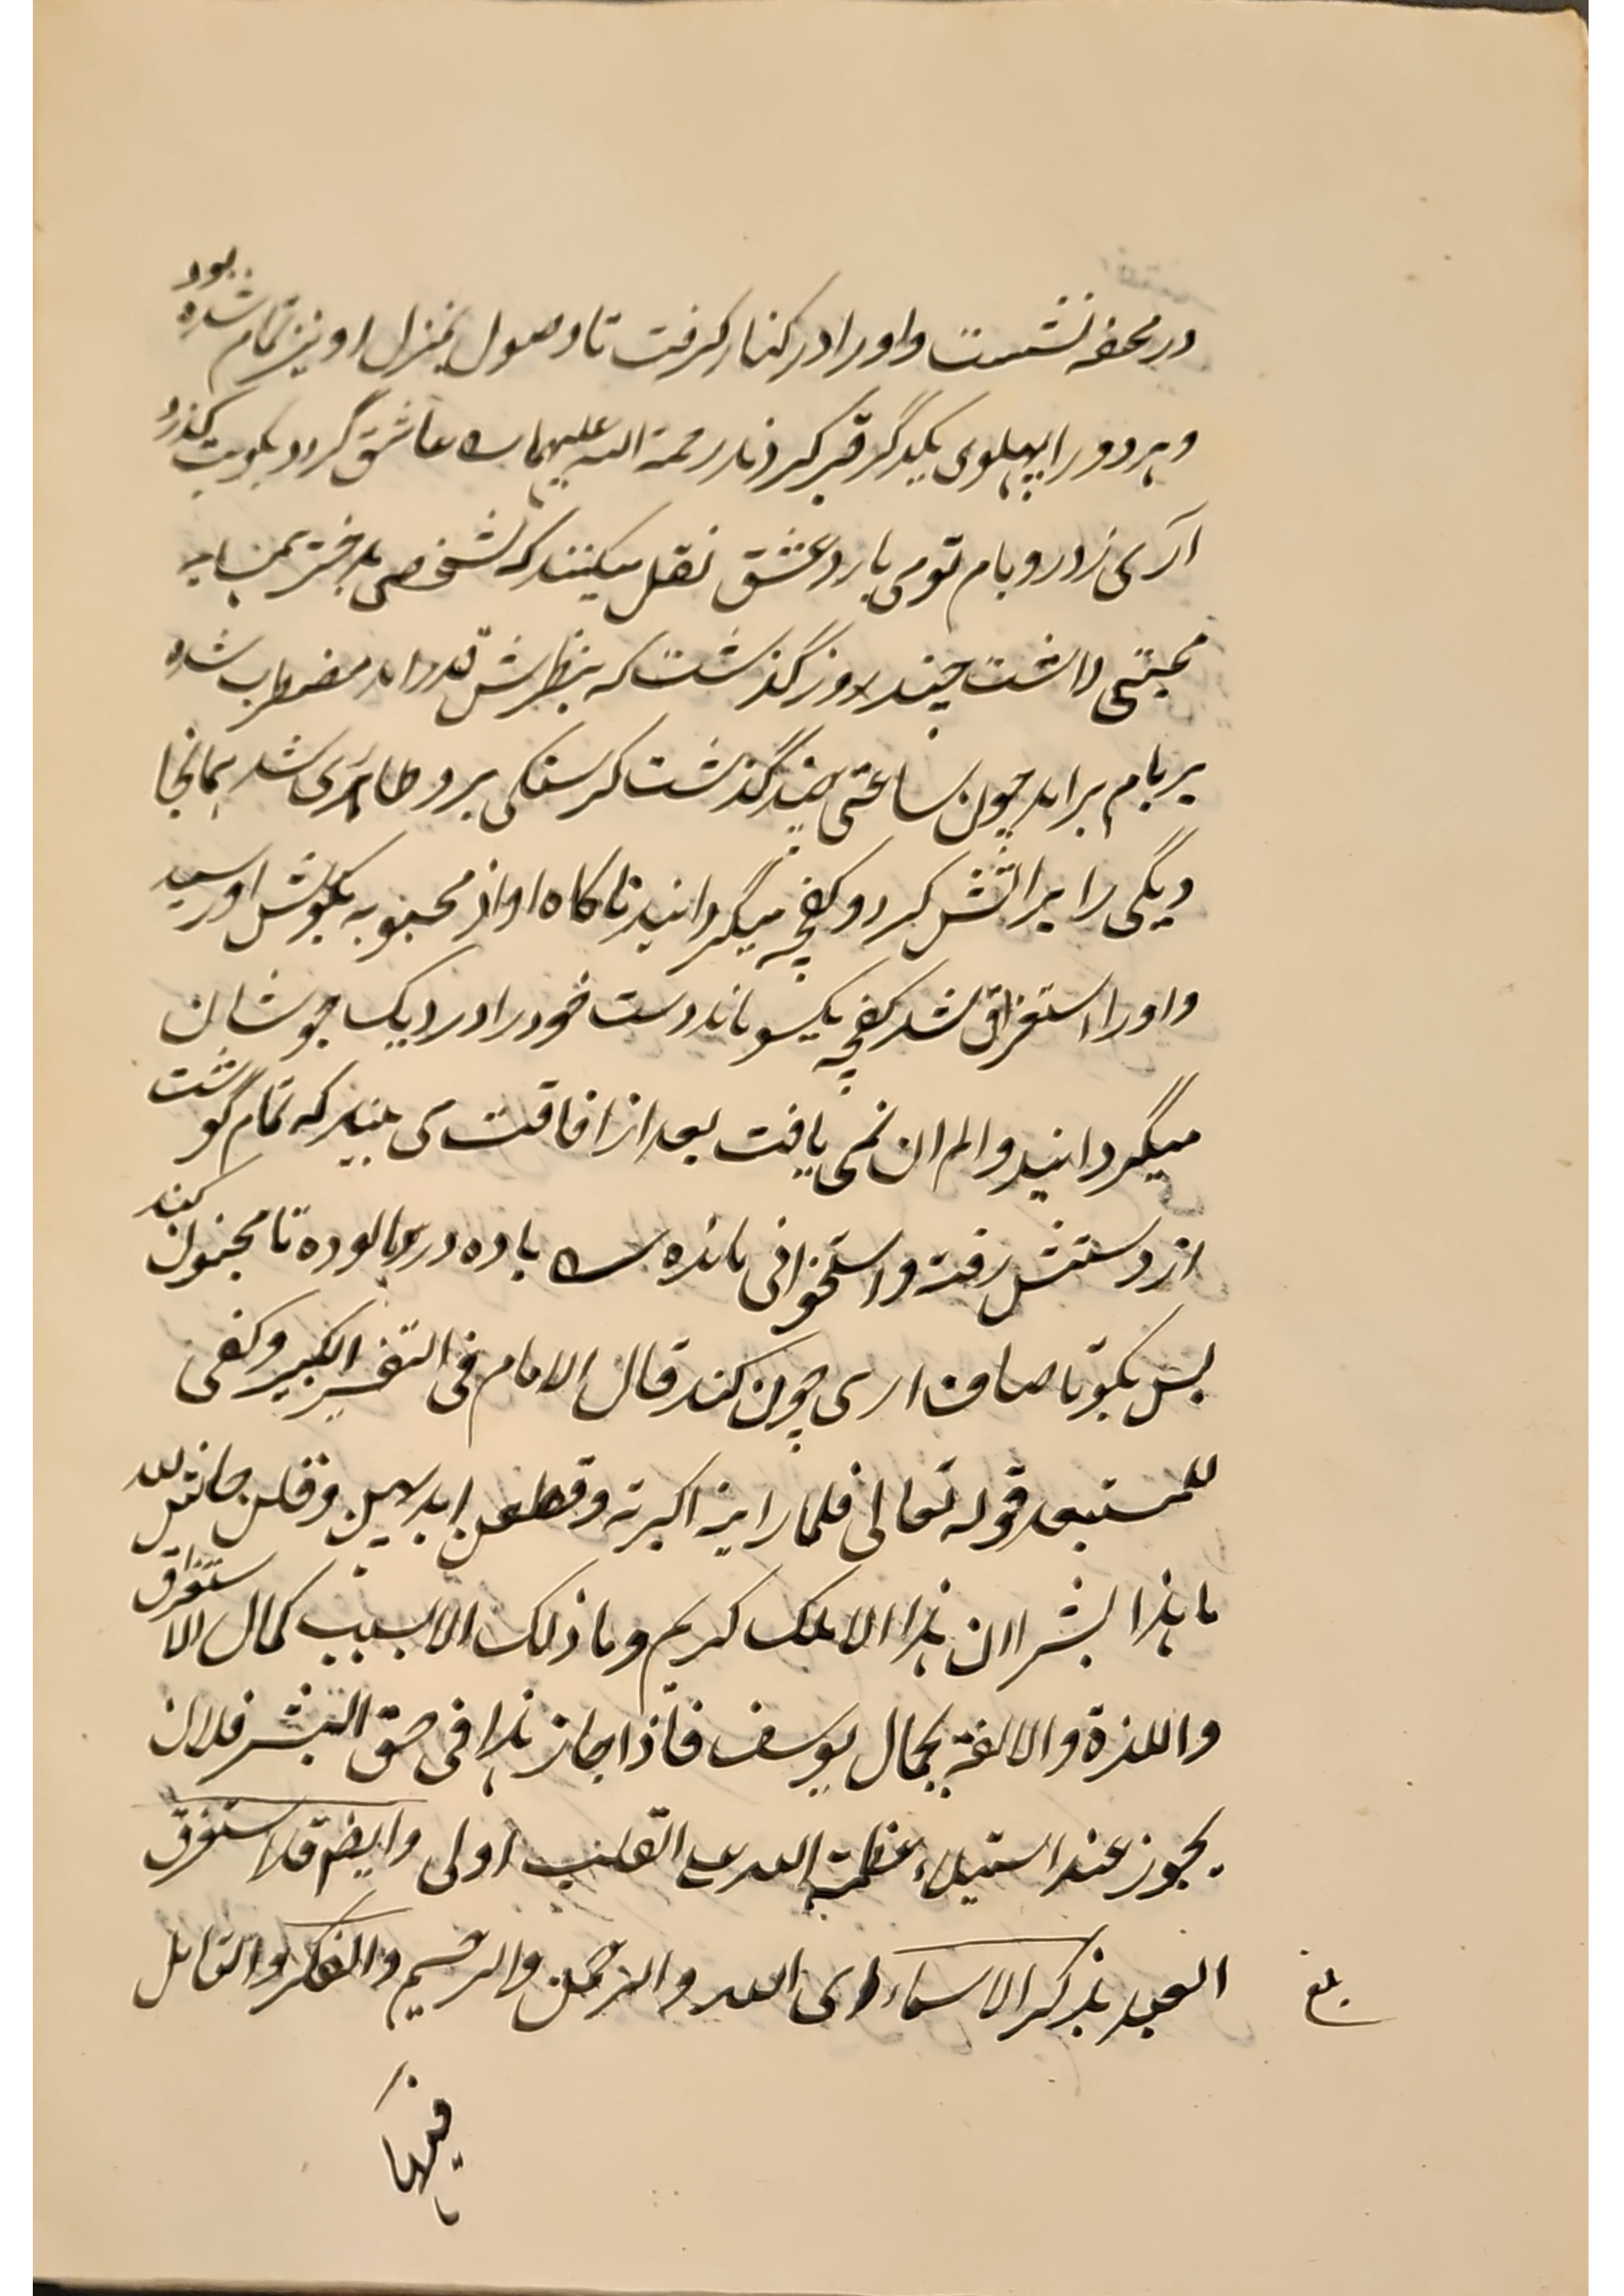 در محفه نشست و او را در کنار کرفت تا وصول بمنزل او نیز تمام شده بود
و هر دو را بپهلوی یکدگر قبر کردند رحمة الله علیهما عاشق گردد بکویت گذرد
آری ز در و بام تو می بارد عشق نقل میکنند که شخصی بدختر
محبتی داشت چند روز گذشت که بنظرش در نیامد مضطرب شده
بر بام برامد چون ساعتی چند گذشت کرسنکی برو طاری شد همانجا
دیگی را بر اتش کرد و کفچه میگردانید ناکاه اواز محبوبه بکوش او رسید
و او را استغراق شد کفچه یکسو ماند دست خود را در دیک جوشان
میگردانید و الم ان نمی یافت بعد از افاقت می بیند که تمام گوشت
از دستش رفته و استخوانی مانده باده درد الوده تا مجنون کند
بس بکو تا صاف اری چون کند قال الامام فی التفسیر الکبیر و کفی
للمستبعد قوله تعالی فلما راینه اکبرنه و قطعن ایدیهن و قلن حاش لله
ما هذا بشرا ان هذا الا ملک کریم و ما ذلک الا بسبب کمال الاستغراق
و اللذة و الالفة بجمال یوسف فاذا جاز هذا فی حق البشر فلان
یجوز عند استیلاء عظمة الله علی القلب اولی و ایضا قد استغرق
العبد بذکر الاسماء ای الله و الرحمن و الرحیم و الفکر و التامل
بلغ
فیها